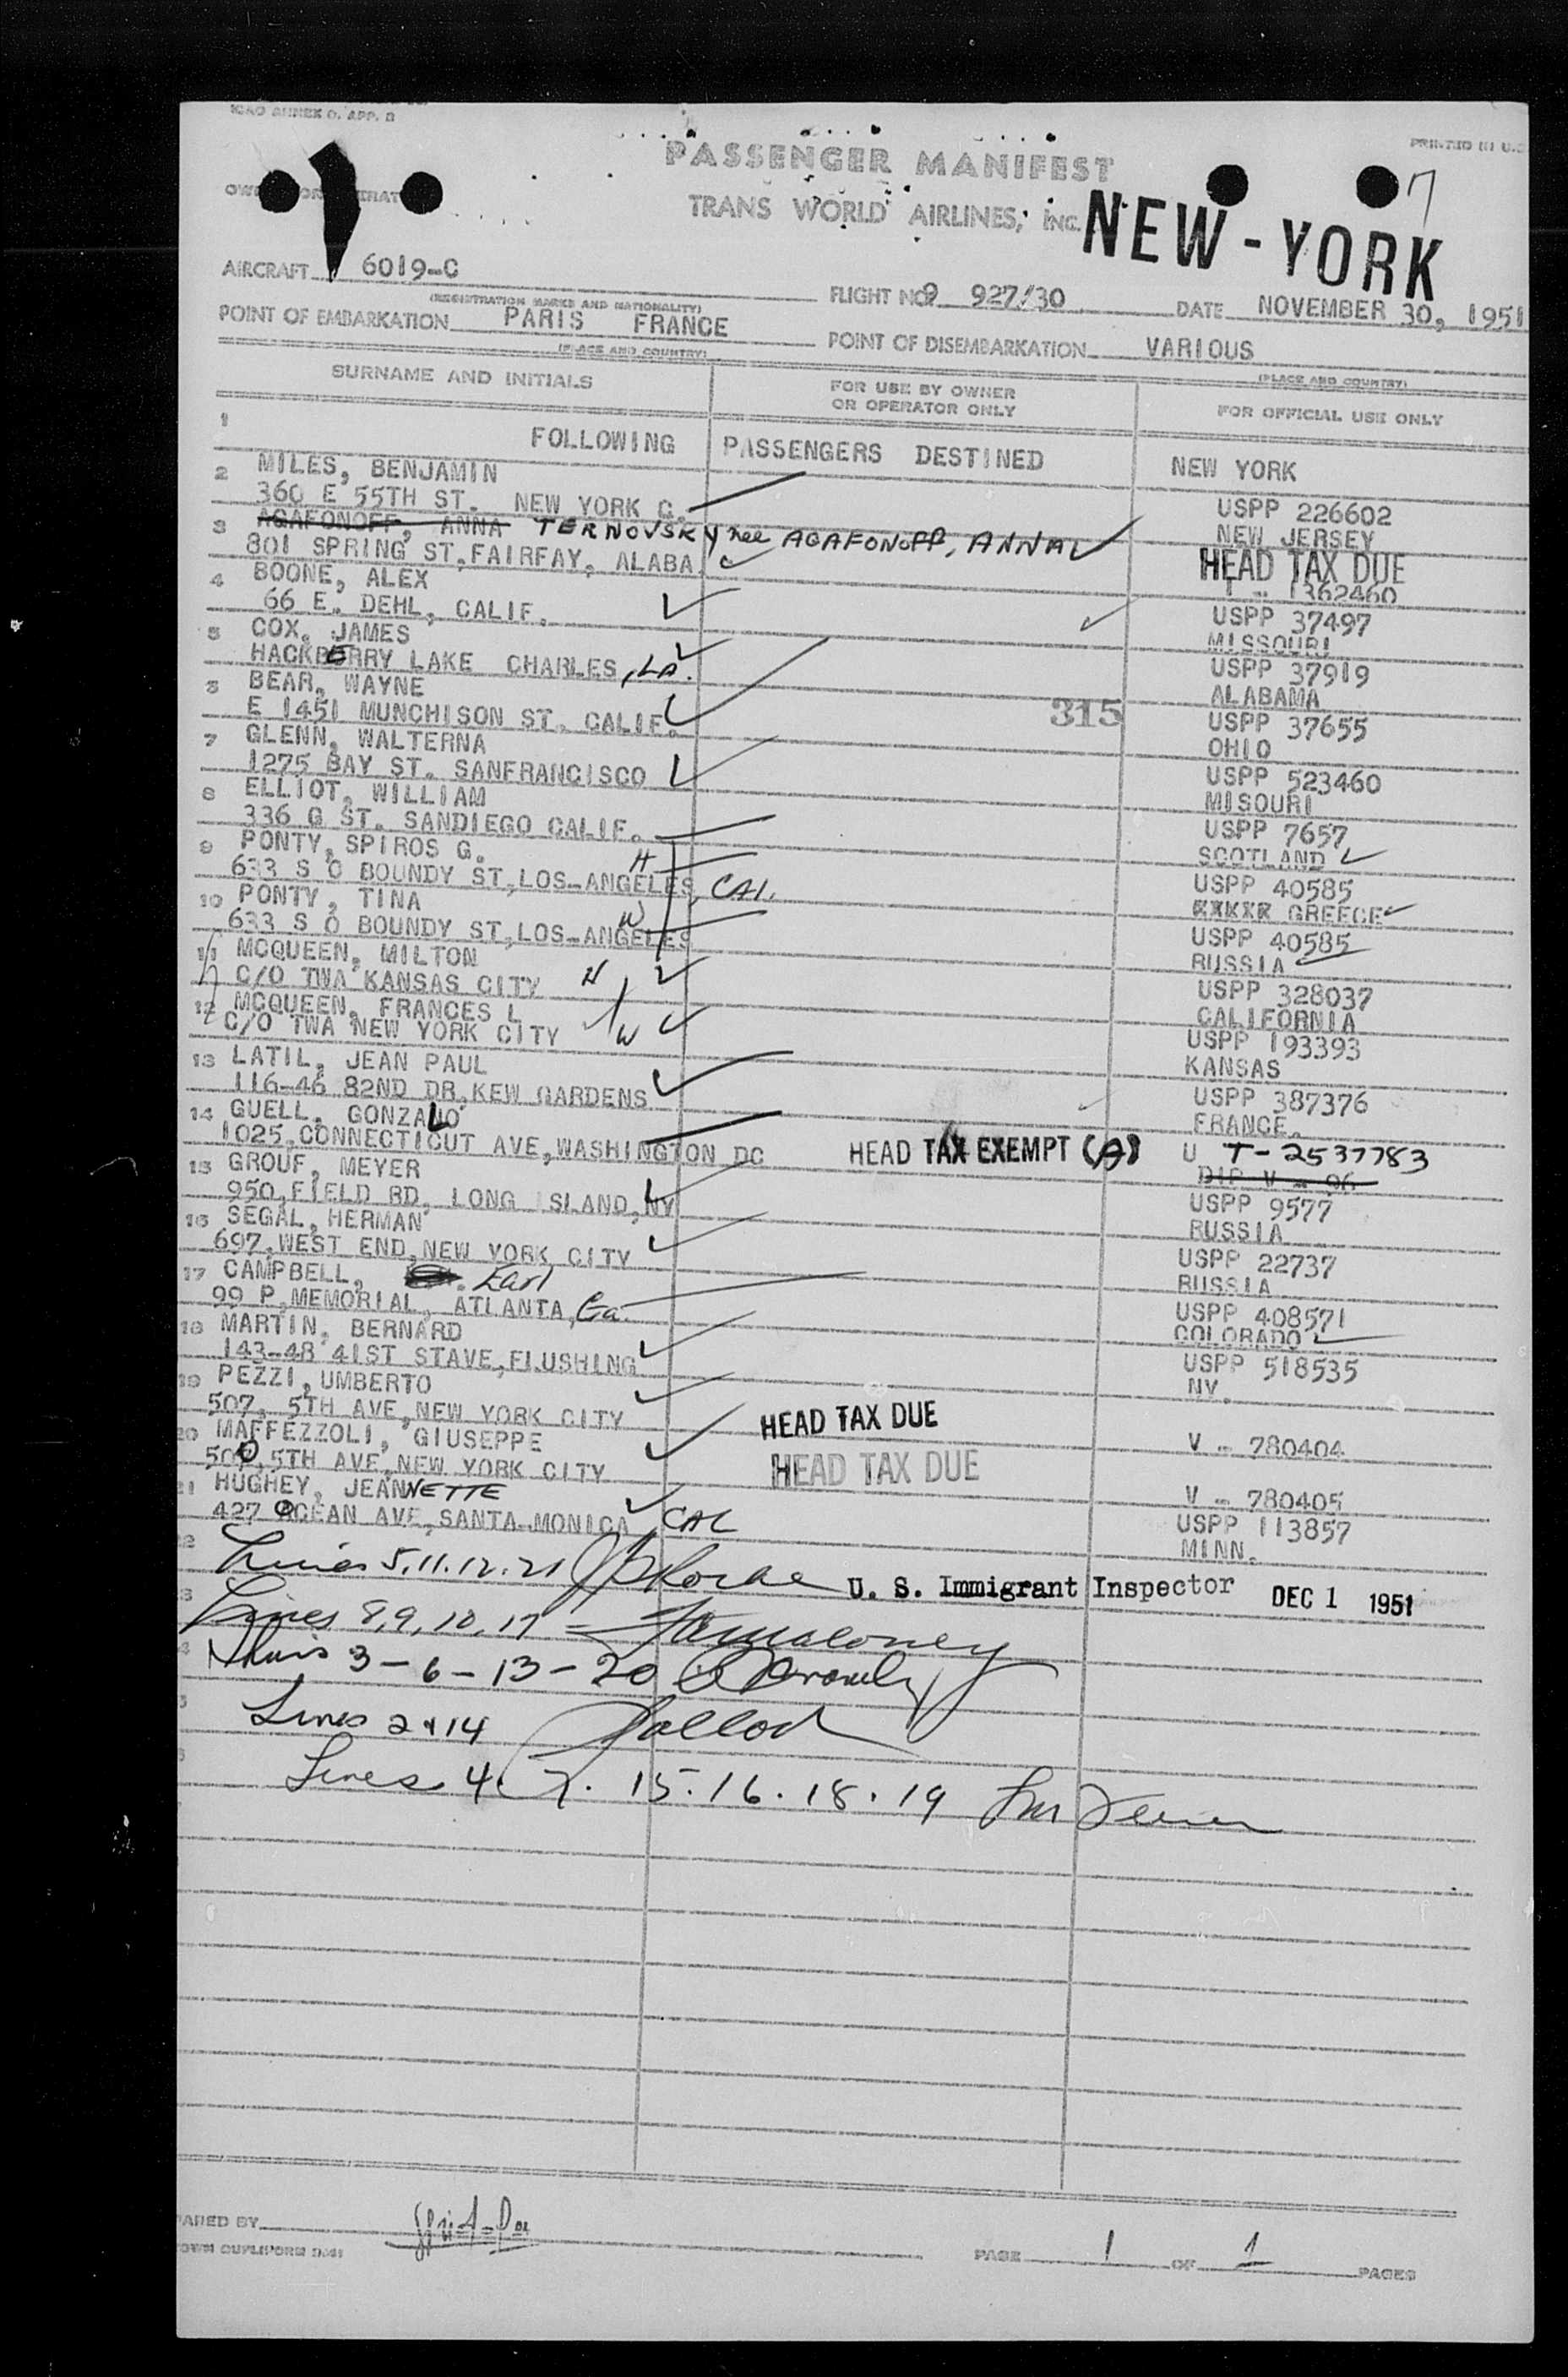 ICAO ANNEX 9, APP. B
PRINTED IN U.S.
PASSENGER MANIFEST
7
TRANS WORLD AIRLINES, INC.
NEW-YORK
AIRCRAFT 6019-C
(REGISTRATION MARKS AND NATIONALITY)
FLIGHT NO. 927/30
DATE NOVEMBER 30, 1951
POINT OF EMBARKATION PARIS FRANCE
(PLACE AND COUNTRY)
POINT OF DISEMBARKATION VARIOUS
(PLACE AND COUNTRY)
SURNAME AND INITIALS
FOR USE BY OWNER OR OPERATOR ONLY
FOR OFFICIAL USE ONLY
1 FOLLOWING PASSENGERS DESTINED NEW YORK
2 MILES, BENJAMIN
360 E 55TH ST. NEW YORK C. USPP 226602
NEW JERSEY
3 AGAFONOFF, ANNA TERNOVSKY nee AGAFONOFF, ANNA
801 SPRING ST, FAIRFAY, ALABA. HEAD TAX DUE
T - 1362460
4 BOONE, ALEX
66 E. DEHL, CALIF. USPP 37497
MISSOURI
5 COX, JAMES
HACKBERRY LAKE CHARLES, LA. USPP 37919
ALABAMA
6 BEAR, WAYNE
E 1451 MUNCHISON ST. CALIF. 315 USPP 37655
OHIO
7 GLENN, WALTERNA
1275 BAY ST. SANFRANCISCO USPP 523460
MISOURI
8 ELLIOT, WILLIAM
336 G ST. SANDIEGO CALIF. USPP 7657
SCOTLAND
9 PONTY, SPIROS G. H
633 S O BOUNDY ST, LOS-ANGELES, CAL. USPP 40585
GREECE
10 PONTY, TINA W
633 S O BOUNDY ST, LOS-ANGELES USPP 40585
RUSSIA
11 MCQUEEN, MILTON
C/O TWA KANSAS CITY H USPP 328037
CALIFORNIA
12 MCQUEEN, FRANCES L
C/O TWA NEW YORK CITY W USPP 193393
KANSAS
13 LATIL, JEAN PAUL
116-46 82ND DR, KEW GARDENS USPP 387376
FRANCE.
14 GUELL, GONZALO
1025, CONNECTICUT AVE, WASHINGTON DC HEAD TAX EXEMPT (A) U T-2537783
DIP V - 96
15 GROUF, MEYER
950, FIELD RD, LONG ISLAND, NY USPP 9577
RUSSIA
16 SEGAL, HERMAN
697, WEST END, NEW YORK CITY USPP 22737
RUSSIA
17 CAMPBELL, Earl
99 P, MEMORIAL, ATLANTA, Ga. USPP 408571
COLORADO
18 MARTIN, BERNARD
143-48 41ST STAVE, FLUSHING USPP 518535
NY.
19 PEZZI, UMBERTO
507, 5TH AVE, NEW YORK CITY HEAD TAX DUE V - 780404
20 MAFFEZZOLI, GIUSEPPE
500, 5TH AVE, NEW YORK CITY HEAD TAX DUE V - 780405
21 HUGHEY, JEANNETTE
427 OCEAN AVE, SANTA-MONICA, CAL USPP 113857
MINN.
Lines 5.11.12.21 U. S. Immigrant Inspector DEC 1 1951
Lines 8, 9, 10, 17 -
Lines 3 - 6 - 13 - 20
Lines 2 & 14
Lines 4. 7. 15. 16. 18. 19
PARED BY
PAGE 1 OF 1 PAGES